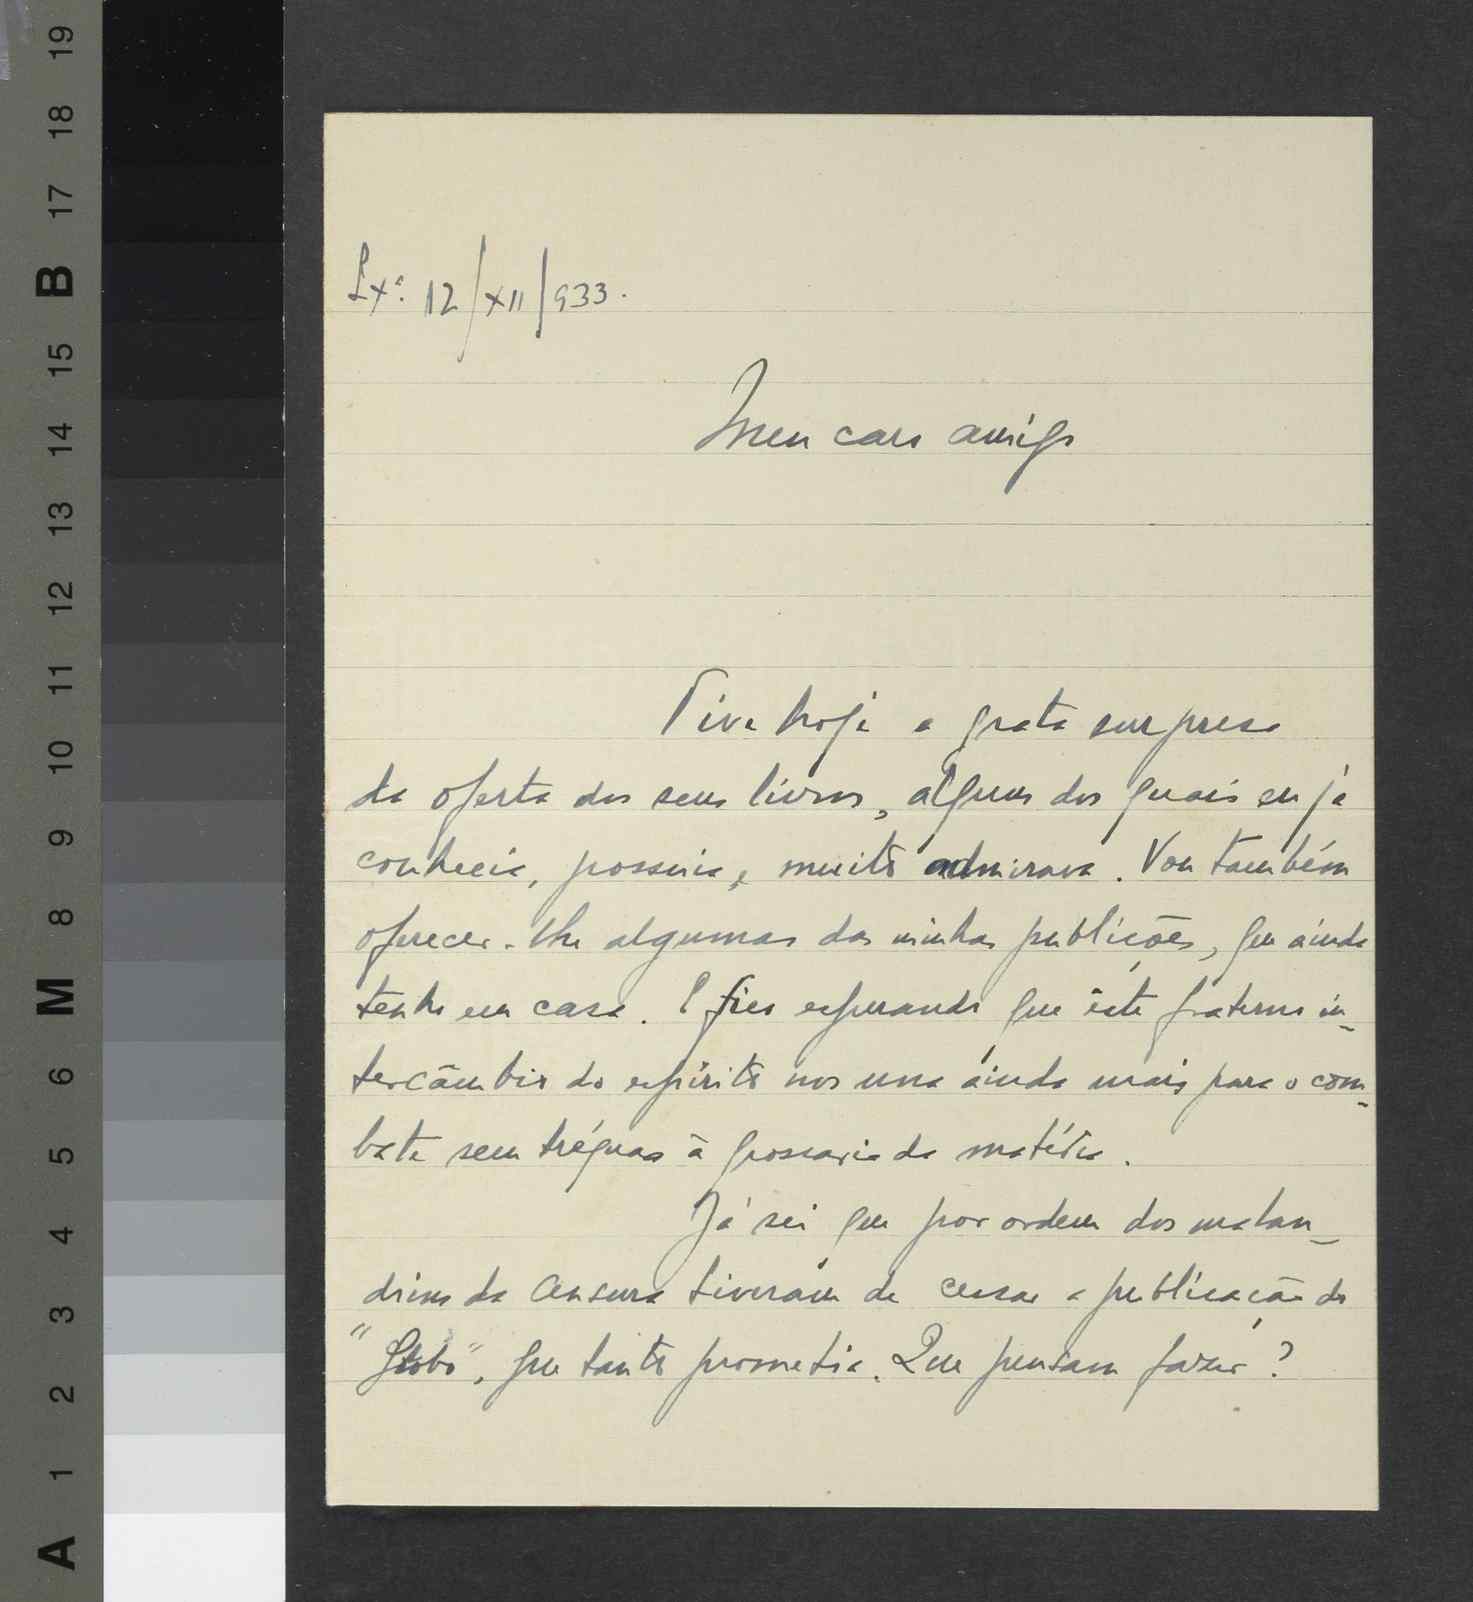 19
18
17
B
15
14
13
12
11
10
9
8
M
6
5
4
3
2
1
A
Lxª. 12/XII/933.
Meu caro amigo
Tive hoje a grata surpresa
da oferta dos seus livros, alguns dos quais eu já
conhecia, possuia, e muito admirava. Vou também
oferecer-lhe algumas das minhas publicões, que àinda
tenho em casa. E fico esperando que êste fraterno in-
tercâmbio do espírito nos una àinda mais para o com-
bate sem tréguas à grossaria da matéria.
Já sei que por ordem dos malan-
drins da Censura tiveram de cessar a publicação do
"Globo", que tanto prometia. Que pensam fazer?